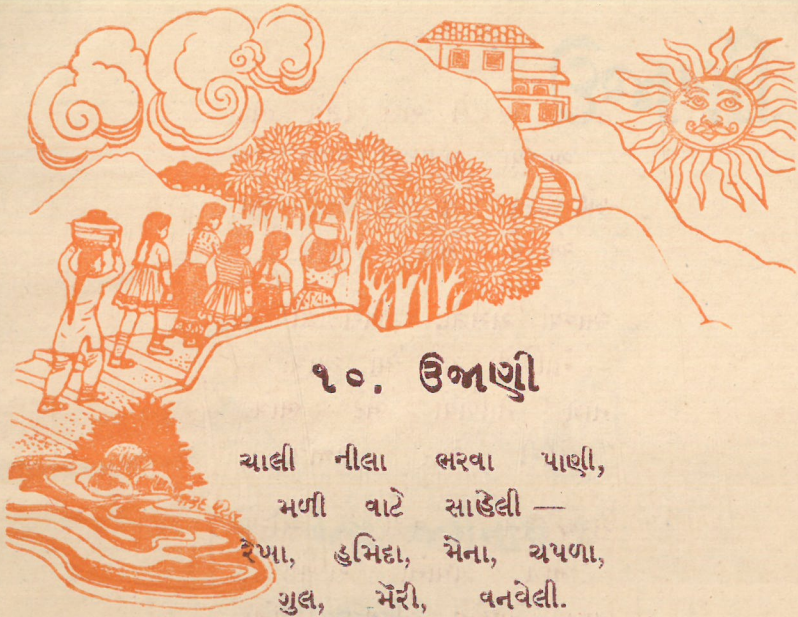 ૧૦. ઉજાણી
ચાલી નીલા ભરવા પાણી,
મળી વાટે સાહેલી —
રેખા, હમિદા, મેના, ચપળા,
ગુલ, મૅરી, વનવેલી.